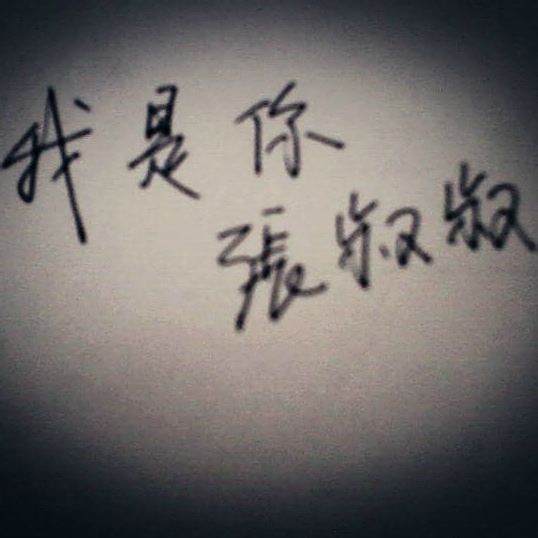 我是你
張叔叔